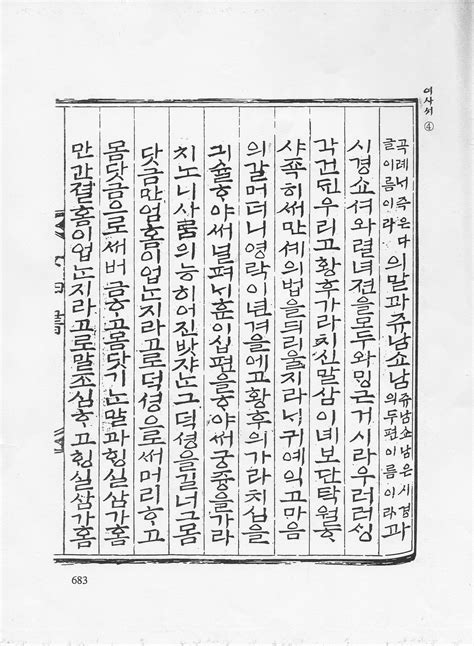 여사서 ④
곡례서죽은다
글이름이라
의말과쥬남쇼남
쥬남소남은시경
의두편이름이라
과
시경쇼셔와렬녀젼을모두와밍근거시라우러러셩
각건뒨우리고황후가라치신말삼이녜보단탁월ᄒᆞ
샤죡히써만셰의법을듸리울지라닉귀예익고마음
의갈머더니영락이년겨을에고황후의가라치심을
긔슐ᄒᆞ야써널펴닉훈이십편을ᄒᆞ야써궁즁을가라
치노니사ᄅᆞᆷ의능히어진밧쟈ᄂᆞᆫ그덕셩을길너그몸
닷금만업홈이업ᄂᆞᆫ지라고로덕셩으로써머리ᄒᆞ고
몸닷금으로써버금ᄒᆞ고몸닷기ᄂᆞᆫ말과힝실삼가홈
만간졀홈이업ᄂᆞᆫ지라고로말조심ᄒᆞ고힝실삼가홈
683